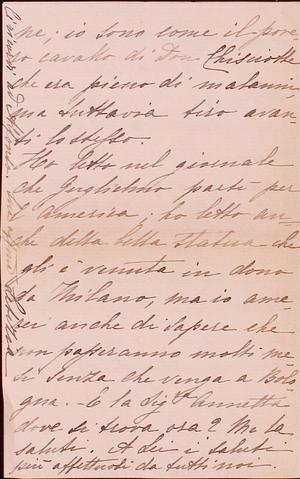 ne; io sono come il pove-
ro cavallo di Don Chisciotte
che era pieno di malanni,
ma tuttavia tiro avan-
ti lo stesso.
Ho letto nel giornale
che Guglielmo partì per
l'America; ho letto an-
che della bella statua che
gli è venuta in dono
da Milano, ma io ame-
rei anche di sapere che
non passeranno molti me-
si senza che venga a Bolo-
gna. - E la Sig.ra Annetta
dove si trova ora? Me la
saluti. A Lei i saluti
più affettuosi da tutti noi.